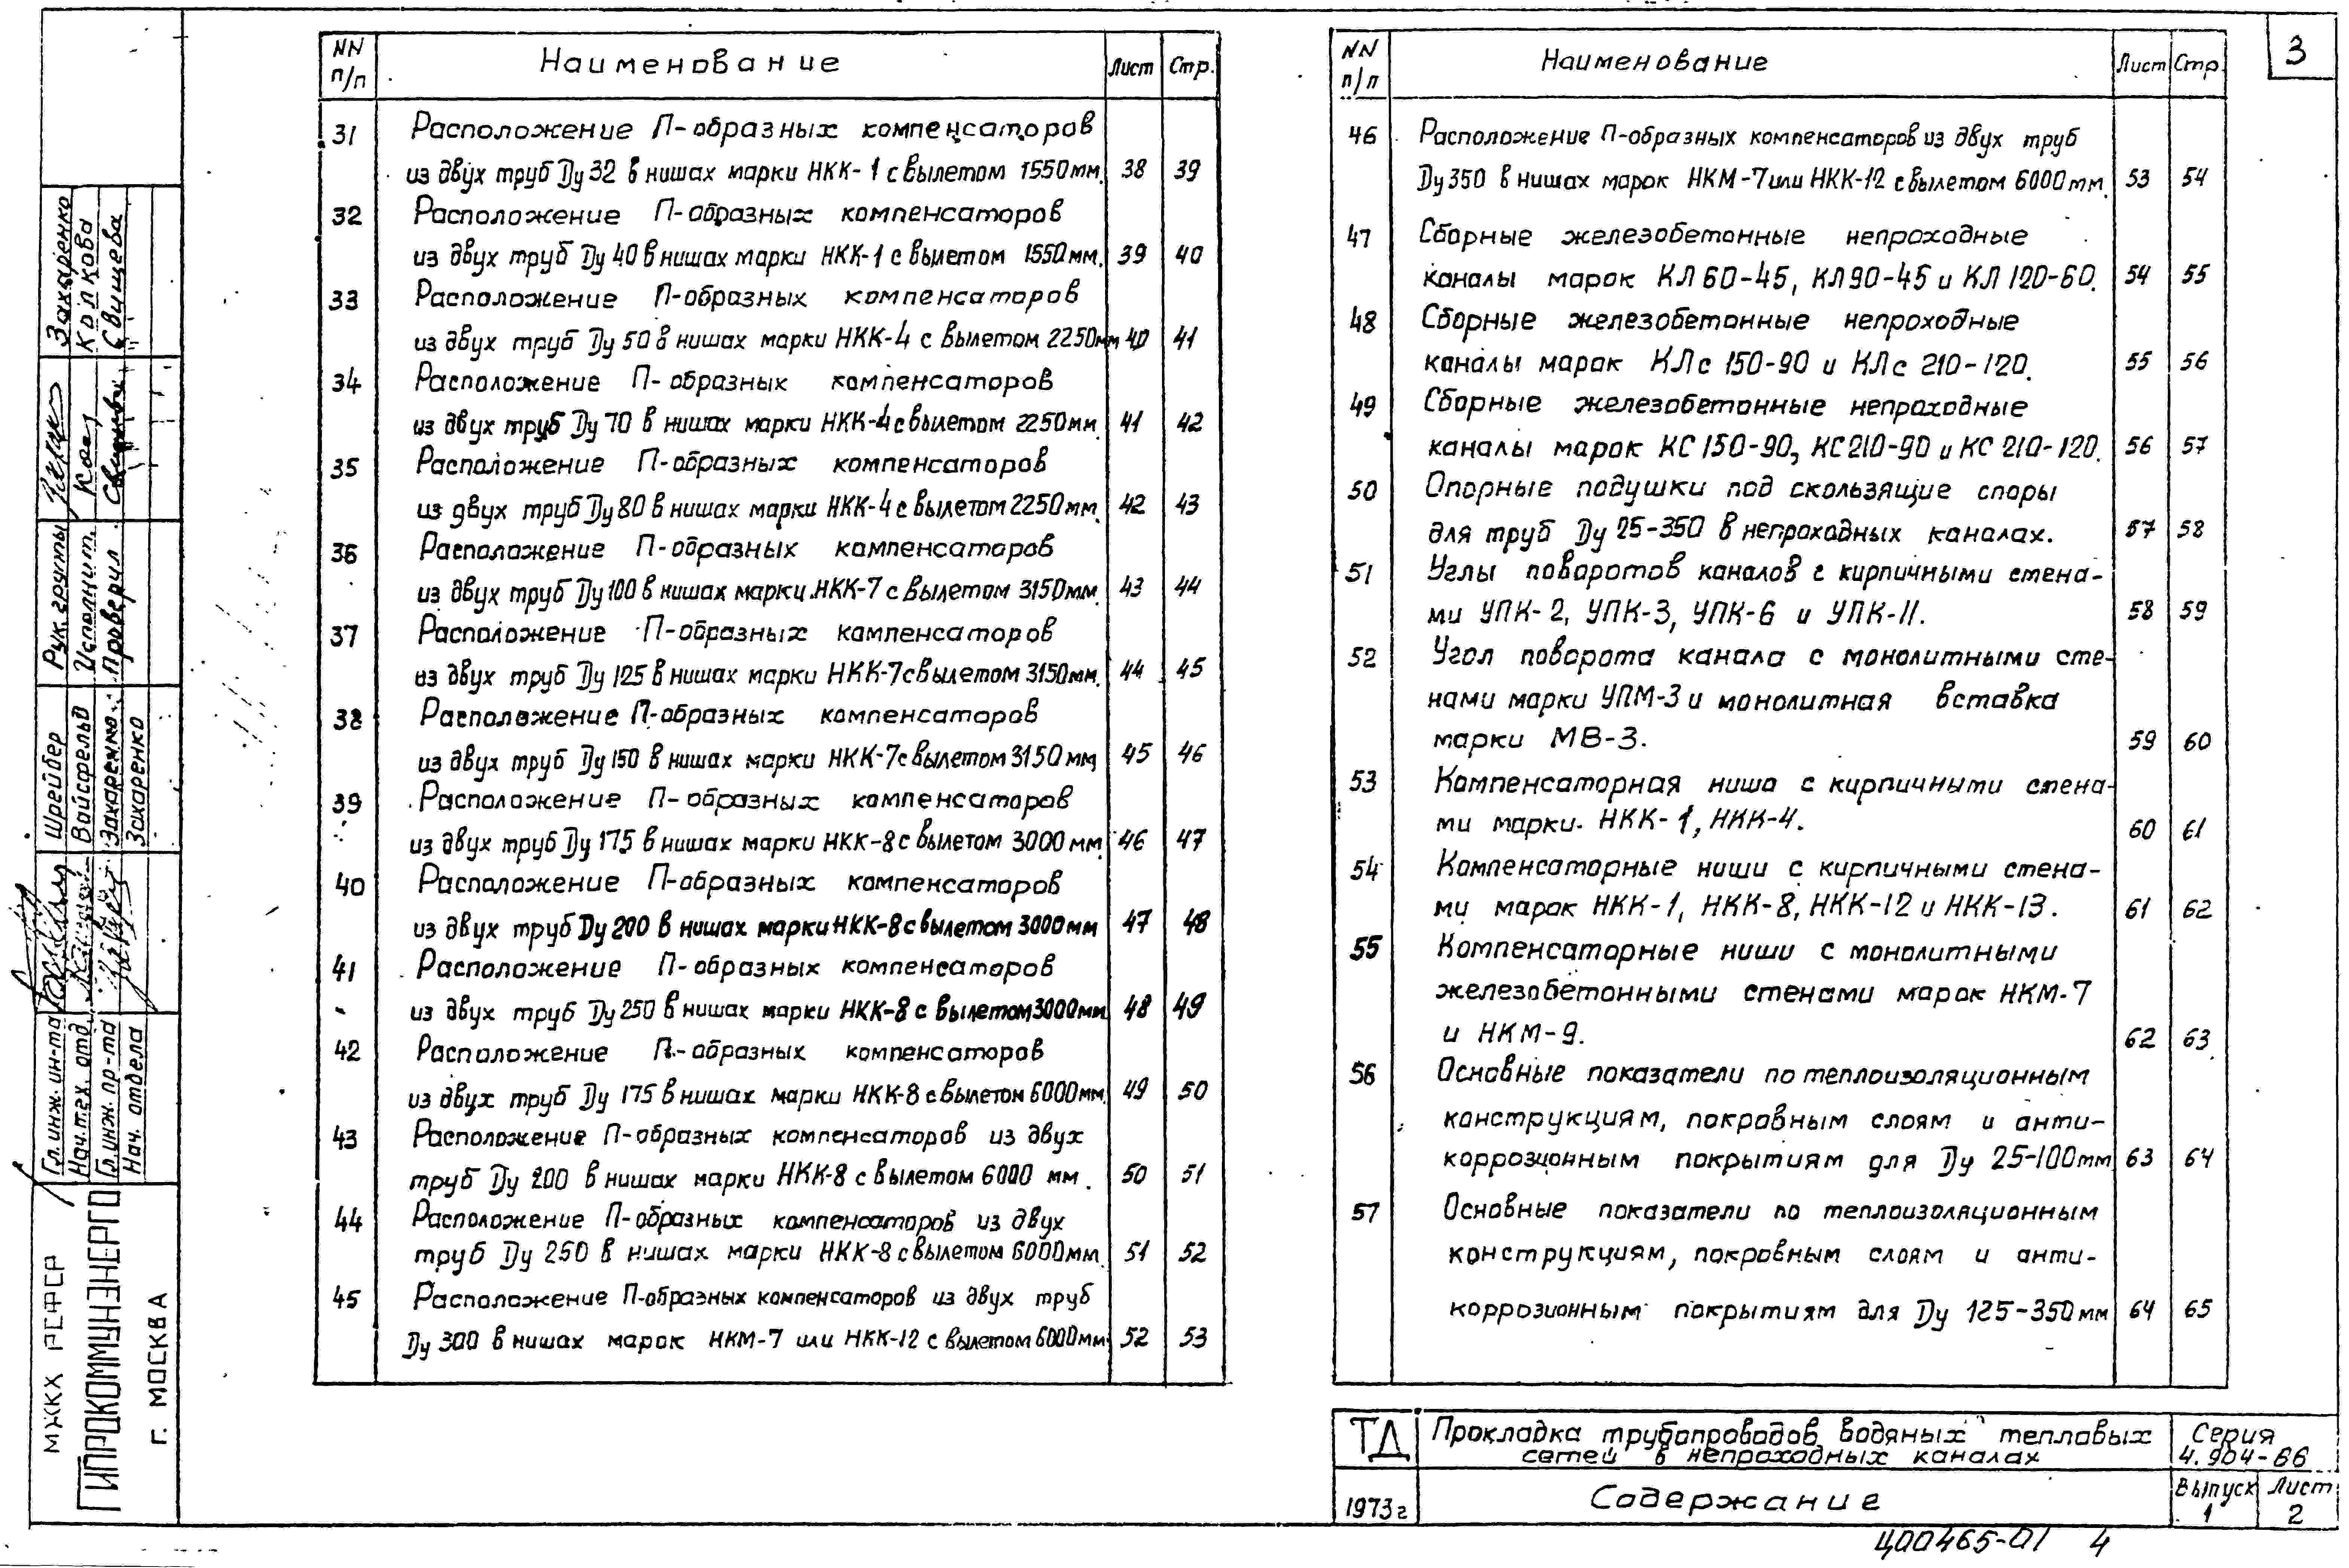 3
NN п/п Наименование Лист Стр.
31 Расположение П-образных компенсаторов
из двух труб Ду 32 в нишах марки НКК-1 с вылетом 1550мм. 38 39
32 Расположение П-образных компенсаторов
из двух труб Ду 40 в нишах марки НКК-1 с вылетом 1550мм. 39 40
33 Расположение П-образных компенсаторов
из двух труб Ду 50 в нишах марки НКК-4 с вылетом 2250мм 40 41
34 Расположение П-образных компенсаторов
из двух труб Ду 70 в нишах марки НКК-4 с вылетом 2250мм. 41 42
35 Расположение П-образных компенсаторов
из двух труб Ду 80 в нишах марки НКК-4 с вылетом 2250мм. 42 43
36 Расположение П-образных компенсаторов
из двух труб Ду 100 в нишах марки НКК-7 с вылетом 3150мм. 43 44
37 Расположение П-образных компенсаторов
из двух труб Ду 125 в нишах марки НКК-7 с вылетом 3150мм. 44 45
38 Расположение П-образных компенсаторов
из двух труб Ду 150 в нишах марки НКК-7 с вылетом 3150мм 45 46
39 Расположение П-образных компенсаторов
из двух труб Ду 175 в нишах марки НКК-8 с вылетом 3000мм. 46 47
40 Расположение П-образных компенсаторов
из двух труб Ду 200 в нишах марки НКК-8 с вылетом 3000мм 47 48
41 Расположение П-образных компенсаторов
из двух труб Ду 250 в нишах марки НКК-8 с вылетом 3000мм 48 49
42 Расположение П-образных компенсаторов
из двух труб Ду 175 в нишах марки НКК-8 с вылетом 6000мм. 49 50
43 Расположение П-образных компенсаторов из двух
труб Ду 200 в нишах марки НКК-8 с вылетом 6000 мм. 50 51
44 Расположение П-образных компенсаторов из двух
труб Ду 250 в нишах марки НКК-8 с вылетом 6000мм. 51 52
45 Расположение П-образных компенсаторов из двух труб
Ду 300 в нишах марок НКМ-7 или НКК-12 с вылетом 6000мм 52 53
NN п/п Наименование Лист Стр.
46 Расположение П-образных компенсаторов из двух труб
Ду 350 в нишах марок НКМ-7 или НКК-12 с вылетом 6000мм. 53 54
47 Сборные железобетонные непроходные
каналы марок КЛ 60-45, КЛ 90-45 и КЛ 120-60. 54 55
48 Сборные железобетонные непроходные
каналы марок КЛс 150-90 и КЛс 210-120. 55 56
49 Сборные железобетонные непроходные
каналы марок КС 150-90, КС 210-90 и КС 210-120. 56 57
50 Опорные подушки под скользящие споры
для труб Ду 25-350 в непроходных каналах. 57 58
51 Углы поворотов каналов с кирпичными стена-
ми УПК-2, УПК-3, УПК-6 и УПК-11. 58 59
52 Угол поворота канала с монолитными сте-
нами марки УПМ-3 и монолитная вставка
марки МВ-3. 59 60
53 Компенсаторная ниша с кирпичными стена-
ми марки НКК-1, НКК-4. 60 61
54 Компенсаторные ниши с кирпичными стена-
ми марок НКК-1, НКК-8, НКК-12 и НКК-13. 61 62
55 Компенсаторные ниши с монолитными
железобетонными стенами марок НКМ-7
и НКМ-9. 62 63
56 Основные показатели по теплоизоляционным
конструкциям, покровным слоям и анти-
коррозионным покрытиям для Ду 25-100мм 63 64
57 Основные показатели по теплоизоляционным
конструкциям, покровным слоям и анти-
коррозионным покрытиям для Ду 125-350мм 64 65
ТД Прокладка трубопроводов водяных тепловых
сетей в непроходных каналах
Серия
4.904-66
1973г Содержание
Выпуск 1 Лист 2
Ц00465-01 4
МЖКХ РСФСР
ГИПРОКОММУНЭНЕРГО
г. МОСКВА
Гл. инж. ин-та Шрейбер Рук. группы Захаренко
Нач. тех. отд. Вайсфельд Исполнит. Колкова
Гл. инж. пр-та Захаренко Проверил Свищева
Нач. отдела Захаренко